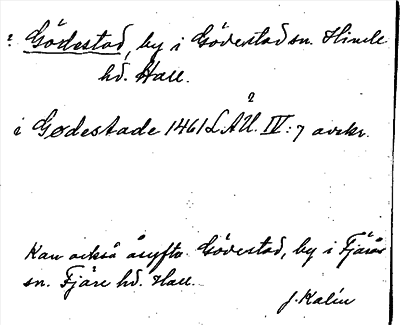 ? Gödestad, by i Gödestad sn. Himle
hd. Hall.
?
i Gødestade 1461 LÅU. IV: 7 avskr.
Kan också åsyfta Gödestad, by i Fjärås
sn. Fjäre hd. Hall.
J. Kalén